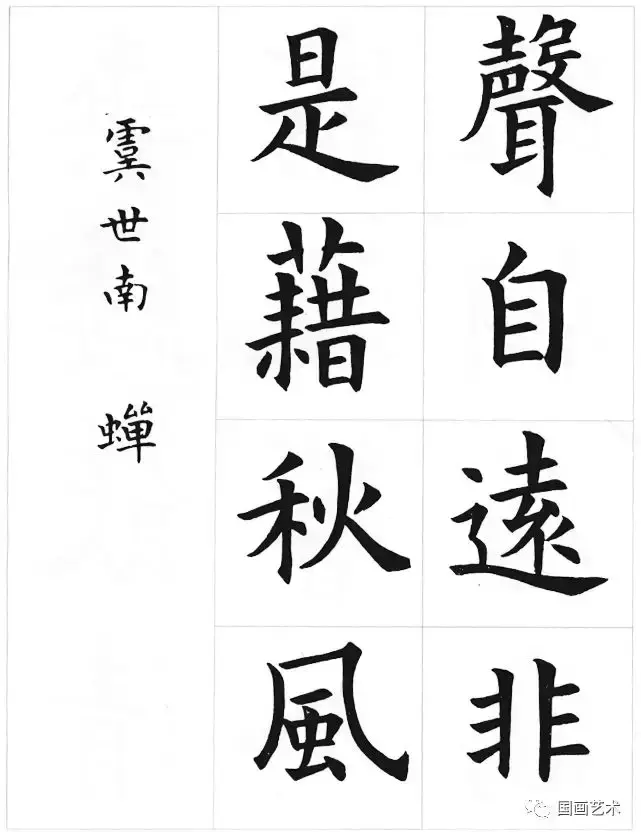 聲自遠非
是藉秋風
虞世南 蟬
国画艺术